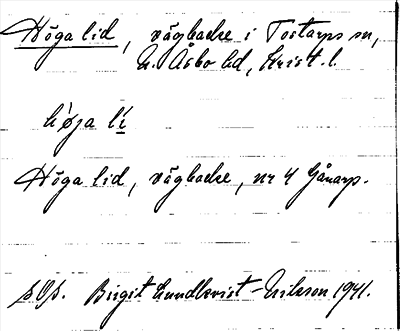 Höga lid, vägbacke i Tostarps sn,
N. Åsbo hd, Krist. l.
hǿja lí
Höga lid, vägbacke, nr 4 Gånarp.
Birgit Lundkvist-Eriksson 1941.